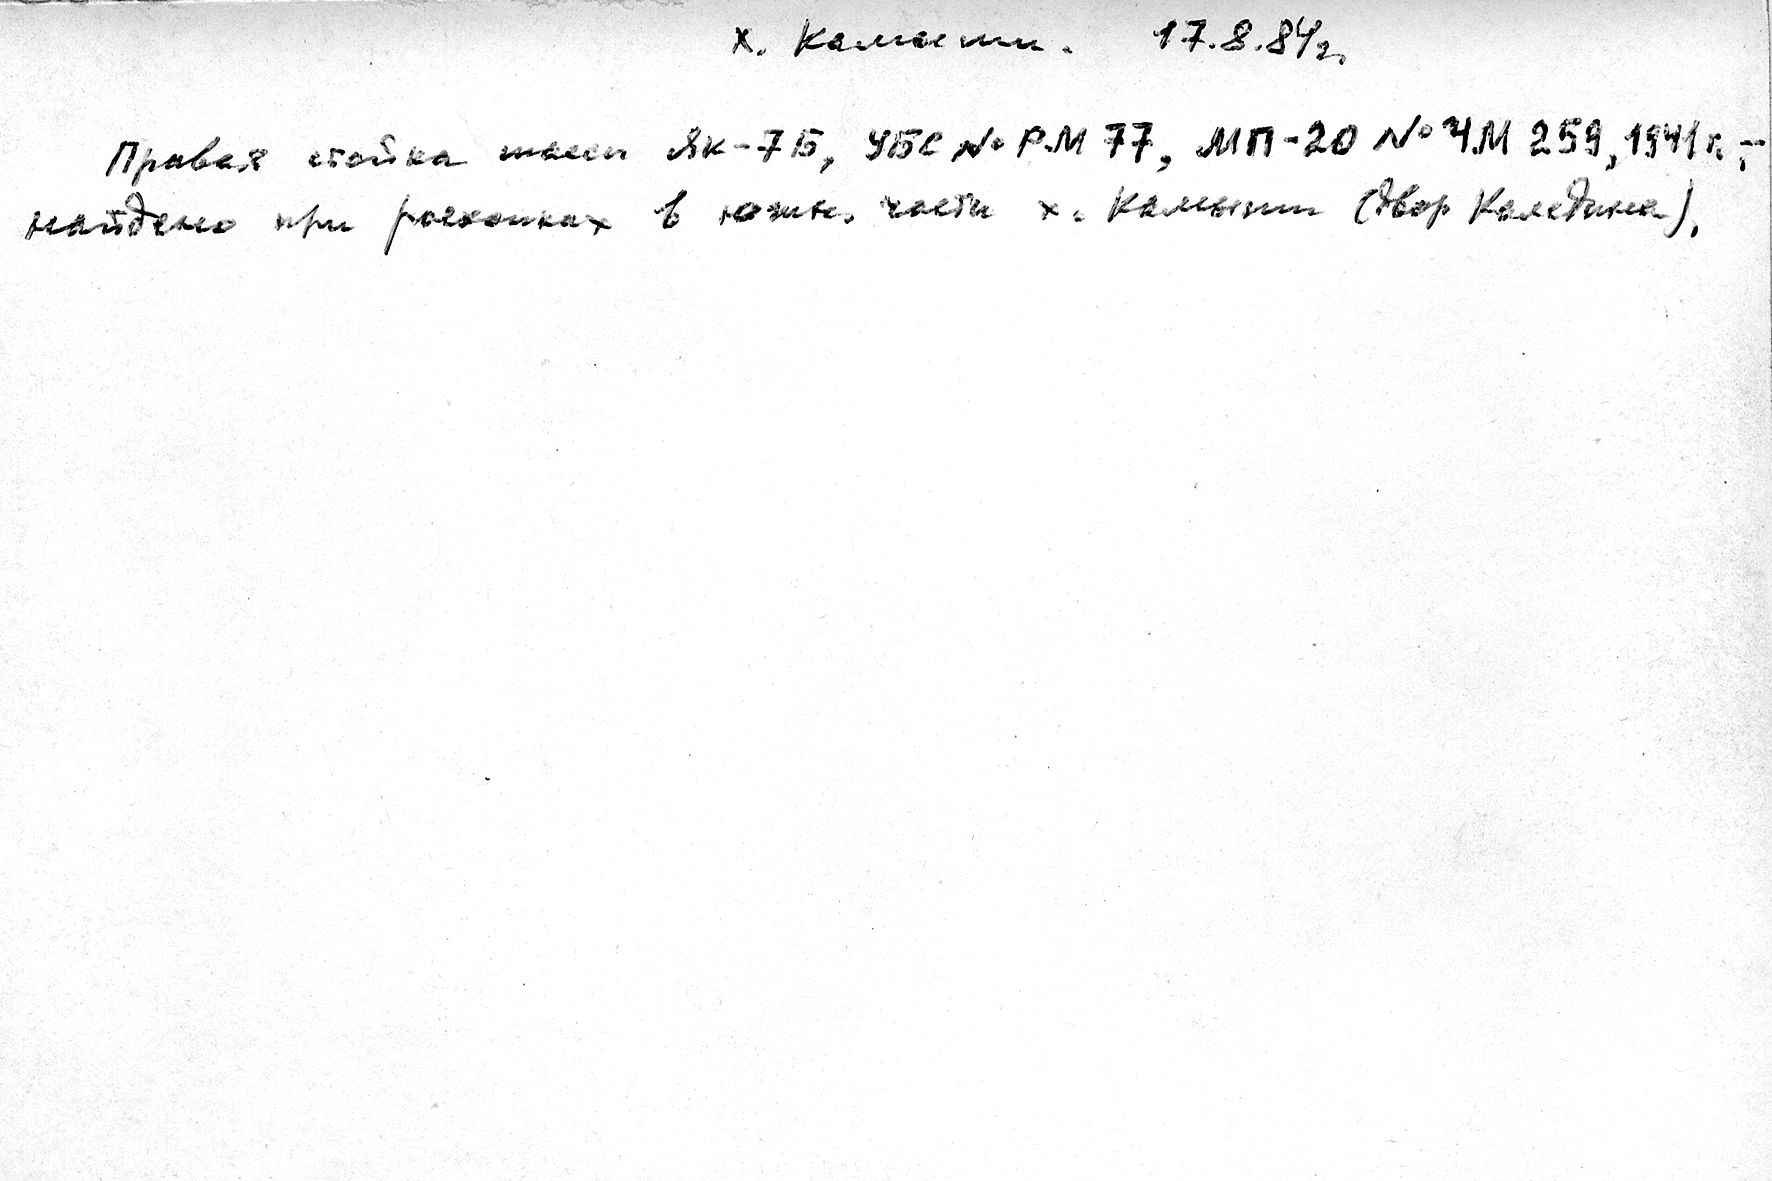 х. Камыши. 17.8.84г.
Правая стойка шасси Як-7Б, УБС № РМ 77, МП-20 № ЧМ 259, 1941г. –
найдено при раскопках в южн. части х. Камыши (двор Каледина).